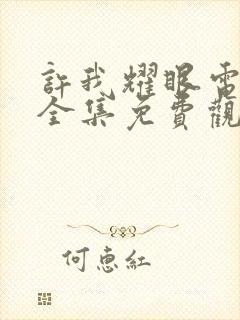 許我耀眼電
全集免費觀
何惠紅